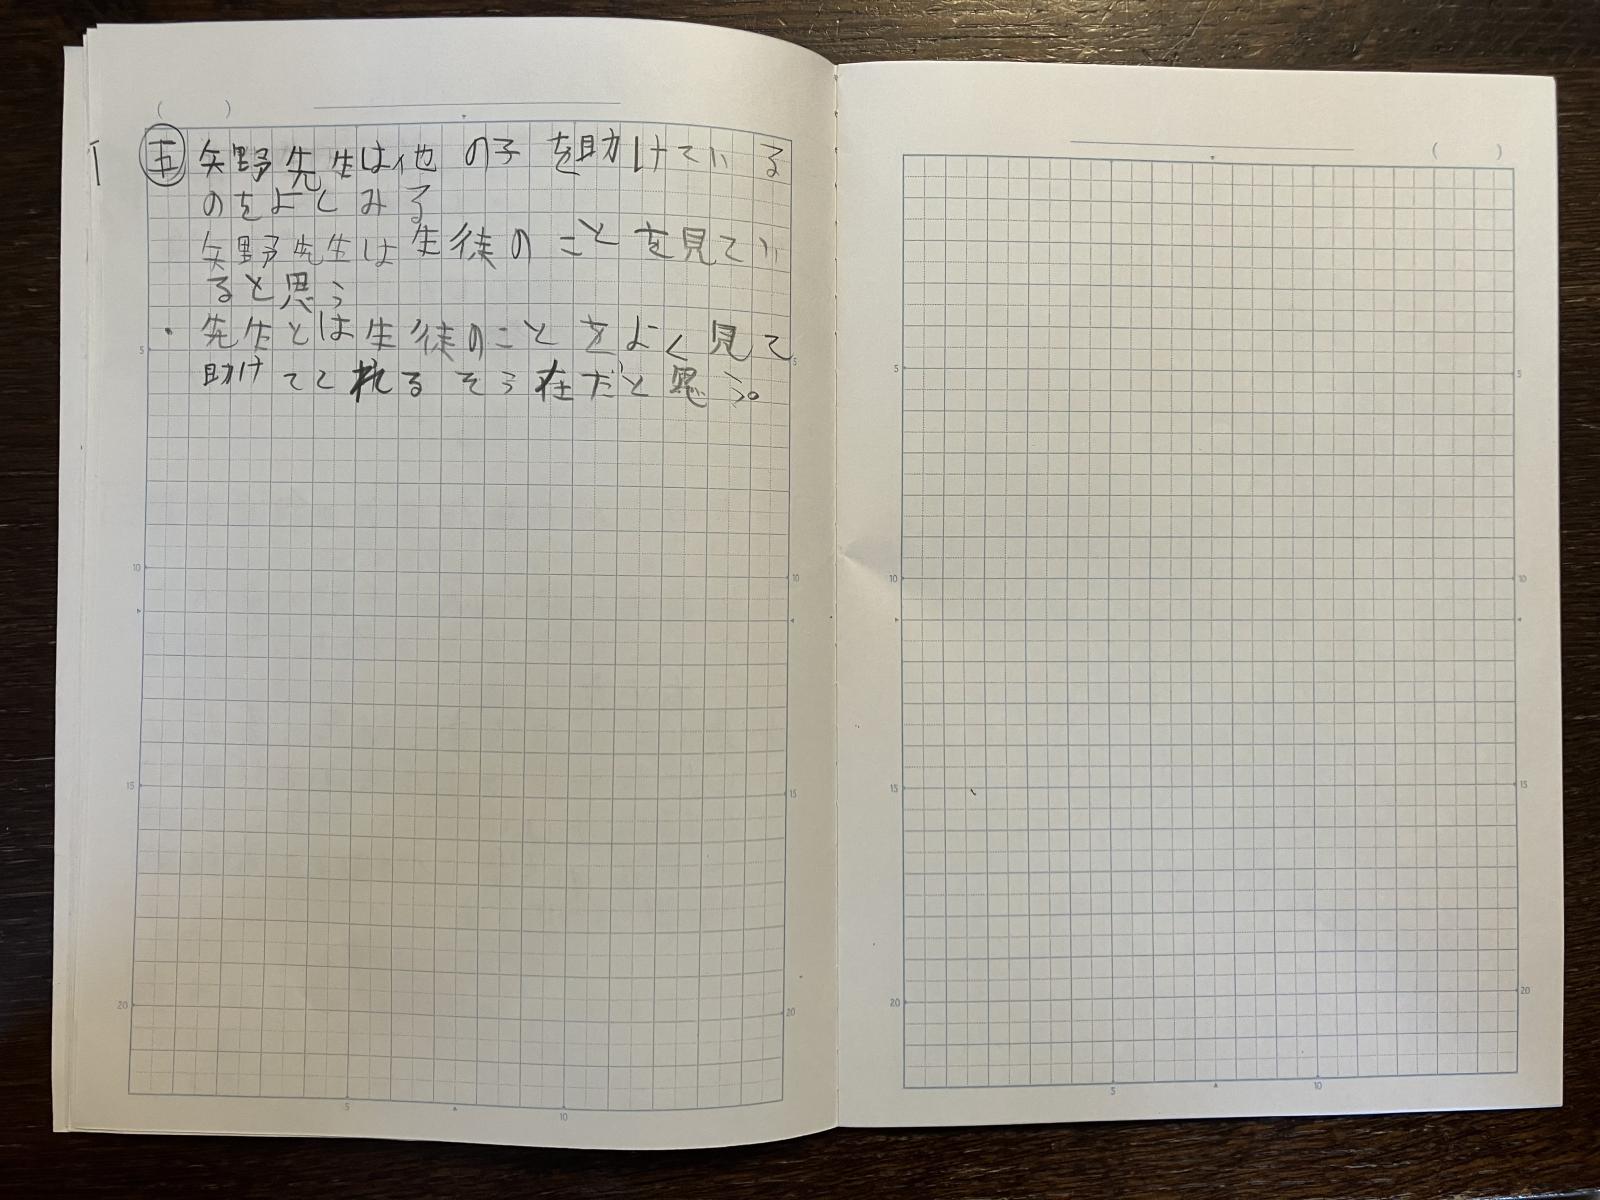 ( )
五 矢野先生は他の子を助けている
のをよくみる
矢野先生は生徒のことを見てい
ると思う
・先生とは生徒のことをよく見て
助けてくれるそう在だと思う。
5
10
15
20
5
10
15
20
5
10
( )
5
10
15
20
5
10
15
20
5
10